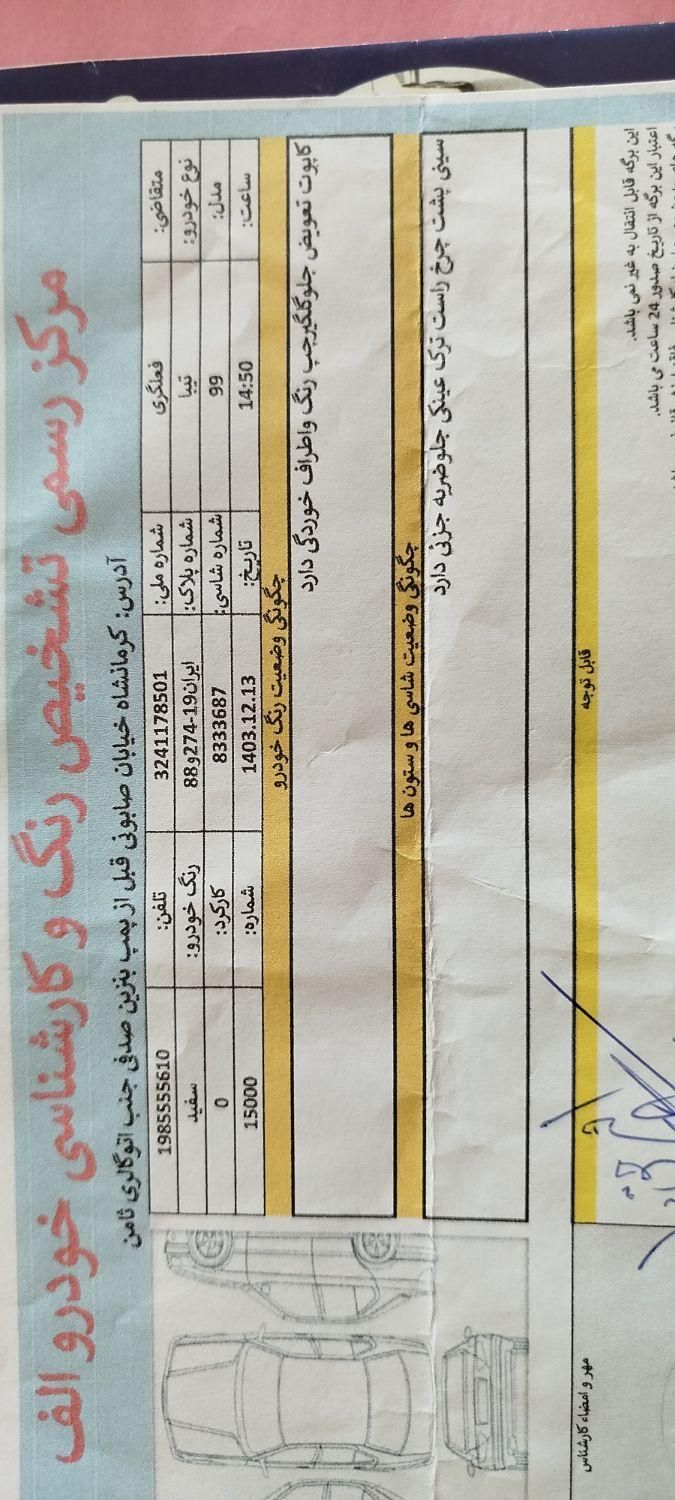 مرکز رسمی تشخیص رنگ و کارشناسی خودرو الف
آدرس: کرمانشاه خیابان صابونی قبل از پمپ بنزین صدفی جنب اتوگالری ثامن
متقاضی: فعلگری شماره ملی: 3241178501 تلفن: 1985555610
نوع خودرو: تیبا شماره پلاک: ایران19-274و88 رنگ خودرو: سفید
مدل: 99 شماره شاسی: 8333687 کارکرد: 0
ساعت: 14:50 تاریخ: 1403.12.13 شماره: 15000
چگونگی وضعیت رنگ خودرو
کاپوت تعویض جلوگلگیرچپ رنگ واطراف خوردگی دارد
چگونگی وضعیت شاسی ها و ستون ها
سینی پشت چرخ راست ترک عینکی جلوضربه جزئی دارد
قابل توجه
این برگه قابل انتقال به غیر نمی باشد.
اعتبار این برگه از تاریخ صدور 24 ساعت می باشد.
مهر و امضاء کارشناس